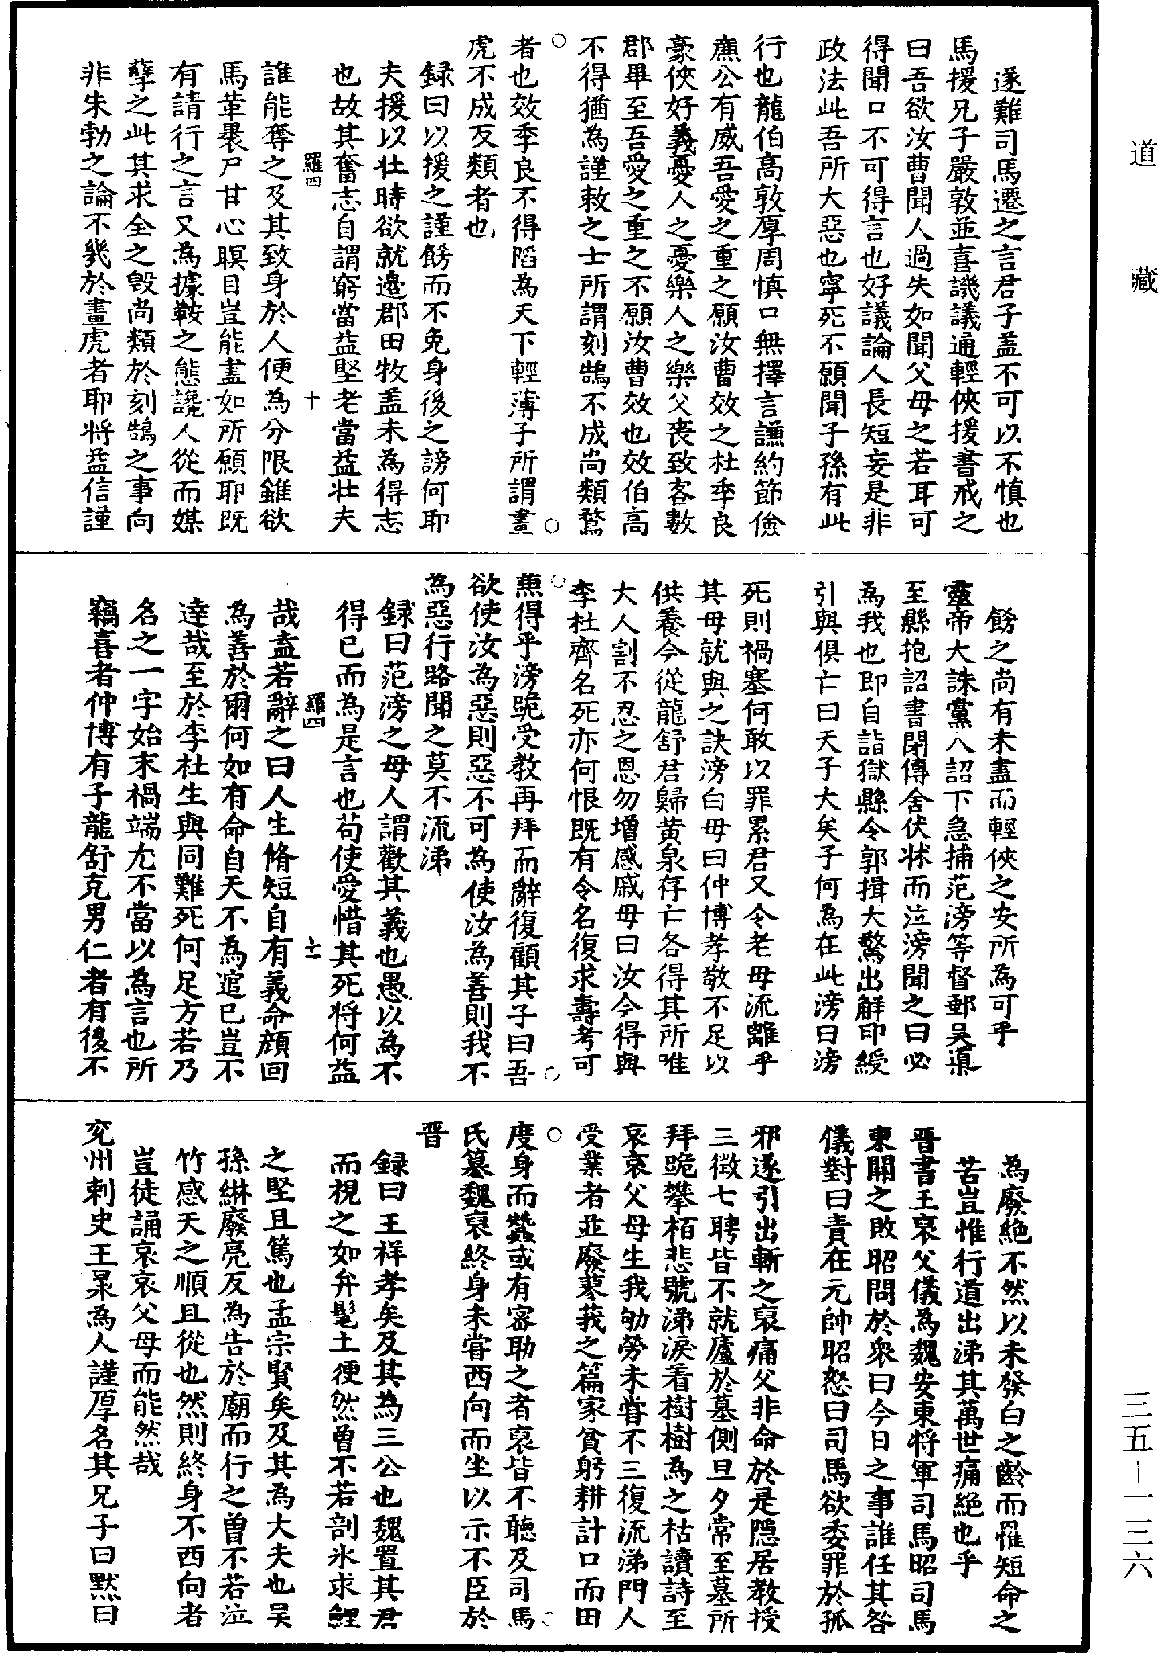 道藏
遂難司馬遷之言君子盖不可以不慎也
馬援兄子嚴敦並喜譏議通輕俠援書戒之
曰吾欲汝曹聞人過失如聞父母之若耳可
得聞口不可得言也好議論人長短妄是非
政法此吾所大惡也寧死不願聞子孫有此
行也龍伯高敦厚周慎口無擇言謙約節儉
亷公有威吾愛之重之願汝曹效之杜季良
豪俠好義憂人之憂樂人之樂父喪致客數
郡畢至吾愛之重之不願汝曹效也效伯高
不得猶為謹敕之士所謂刻鵠不成尚類鶩
者也效季良不得陷為天下輕薄子所謂畫
虎不成反類者也
録曰以援之謹飭而不免身後之謗何耶
夫援以壮時欲就邉郡田牧盖未為得志
也故其奮志自謂窮當益堅老當益壮夫
羅四 十
誰能奪之及其致身於人便為分限錐欲
馬革褁尸甘心瞑目豈能盡如所願耶既
有請行之言又為據鞍之態讒人從而媒
孽之此其求全之毀尚類於刻鵠之事向
非朱勃之論不㡬於畫虎者耶将益信謹
飭之尚有未盡而輕俠之安所為可乎
靈帝大誅黨人詔下急捕范滂等督郵吴導
至縣抱詔書閉傳舍伏牀而泣滂聞之曰必
為我也即自詣獄縣令郭揖大驚出解印綬
引與俱亡曰天子大矣子何為在此滂曰滂
死則禍塞何敢以罪累君又令老母流離乎
其母就與之訣滂白母曰仲博孝敬不足以
供養今從龍舒君歸黄泉存亡各得其所唯
大人割不忍之恩勿增感戚母曰汝今得與
李杜齊名死亦何恨既有令名復求壽考可
䕒得乎滂跪受教再拜而辭復顧其子曰吾
欲使汝為惡則惡不可為使汝為善則我不
為惡行路聞之莫不流涕
録曰范滂之母人謂歡其義也愚以為不
得已而為是言也苟使愛惜其死将何益
羅四 十一
哉盍若辭之曰人生脩短自有義命顔囬
為善於爾何如有命自天不為逭已豈不
逹哉至於李杜生與同難死何足方若乃
名之一字始末禍端尤不當以為言也所
竊喜者仲博有子龍舒克男仁者有後不
為廢絶不然以未發白之齡而罹短命之
苦豈惟行道出涕其萬世痛絶也乎
晋書王裒父儀為魏安東将軍司馬昭司馬
東關之敗昭問於衆曰今日之事誰任其咎
儀對曰責在元帥昭怒曰司馬欲委罪於孤
邪遂引出斬之裒痛父非命於是隠居教授
三徴七聘皆不就廬於墓側旦夕常至墓所
拜跪攀栢悲號涕淚着樹樹為之枯讀詩至
哀哀父母生我劬勞未嘗不三復流涕門人
受業者並廢蓼莪之篇家貧躬耕計口而田
度身而蠶或有宻助之者裒皆不聽及司馬
氏簒魏裒終身未嘗西向而坐以示不臣於
晋
録曰王祥孝矣及其為三公也魏置其君
而視之如弁髦土梗然曽不若剖氷求鯉
之堅且篤也孟宗賢矣及其為大夫也吴
孫綝廢亮反為告於廟而行之曽不若泣
竹感天之順且從也然則終身不西向者
豈徒誦哀哀父母而能然哉
兖州刺史王㫤為人謹厚名其兄子曰黙曰
三五―一三六